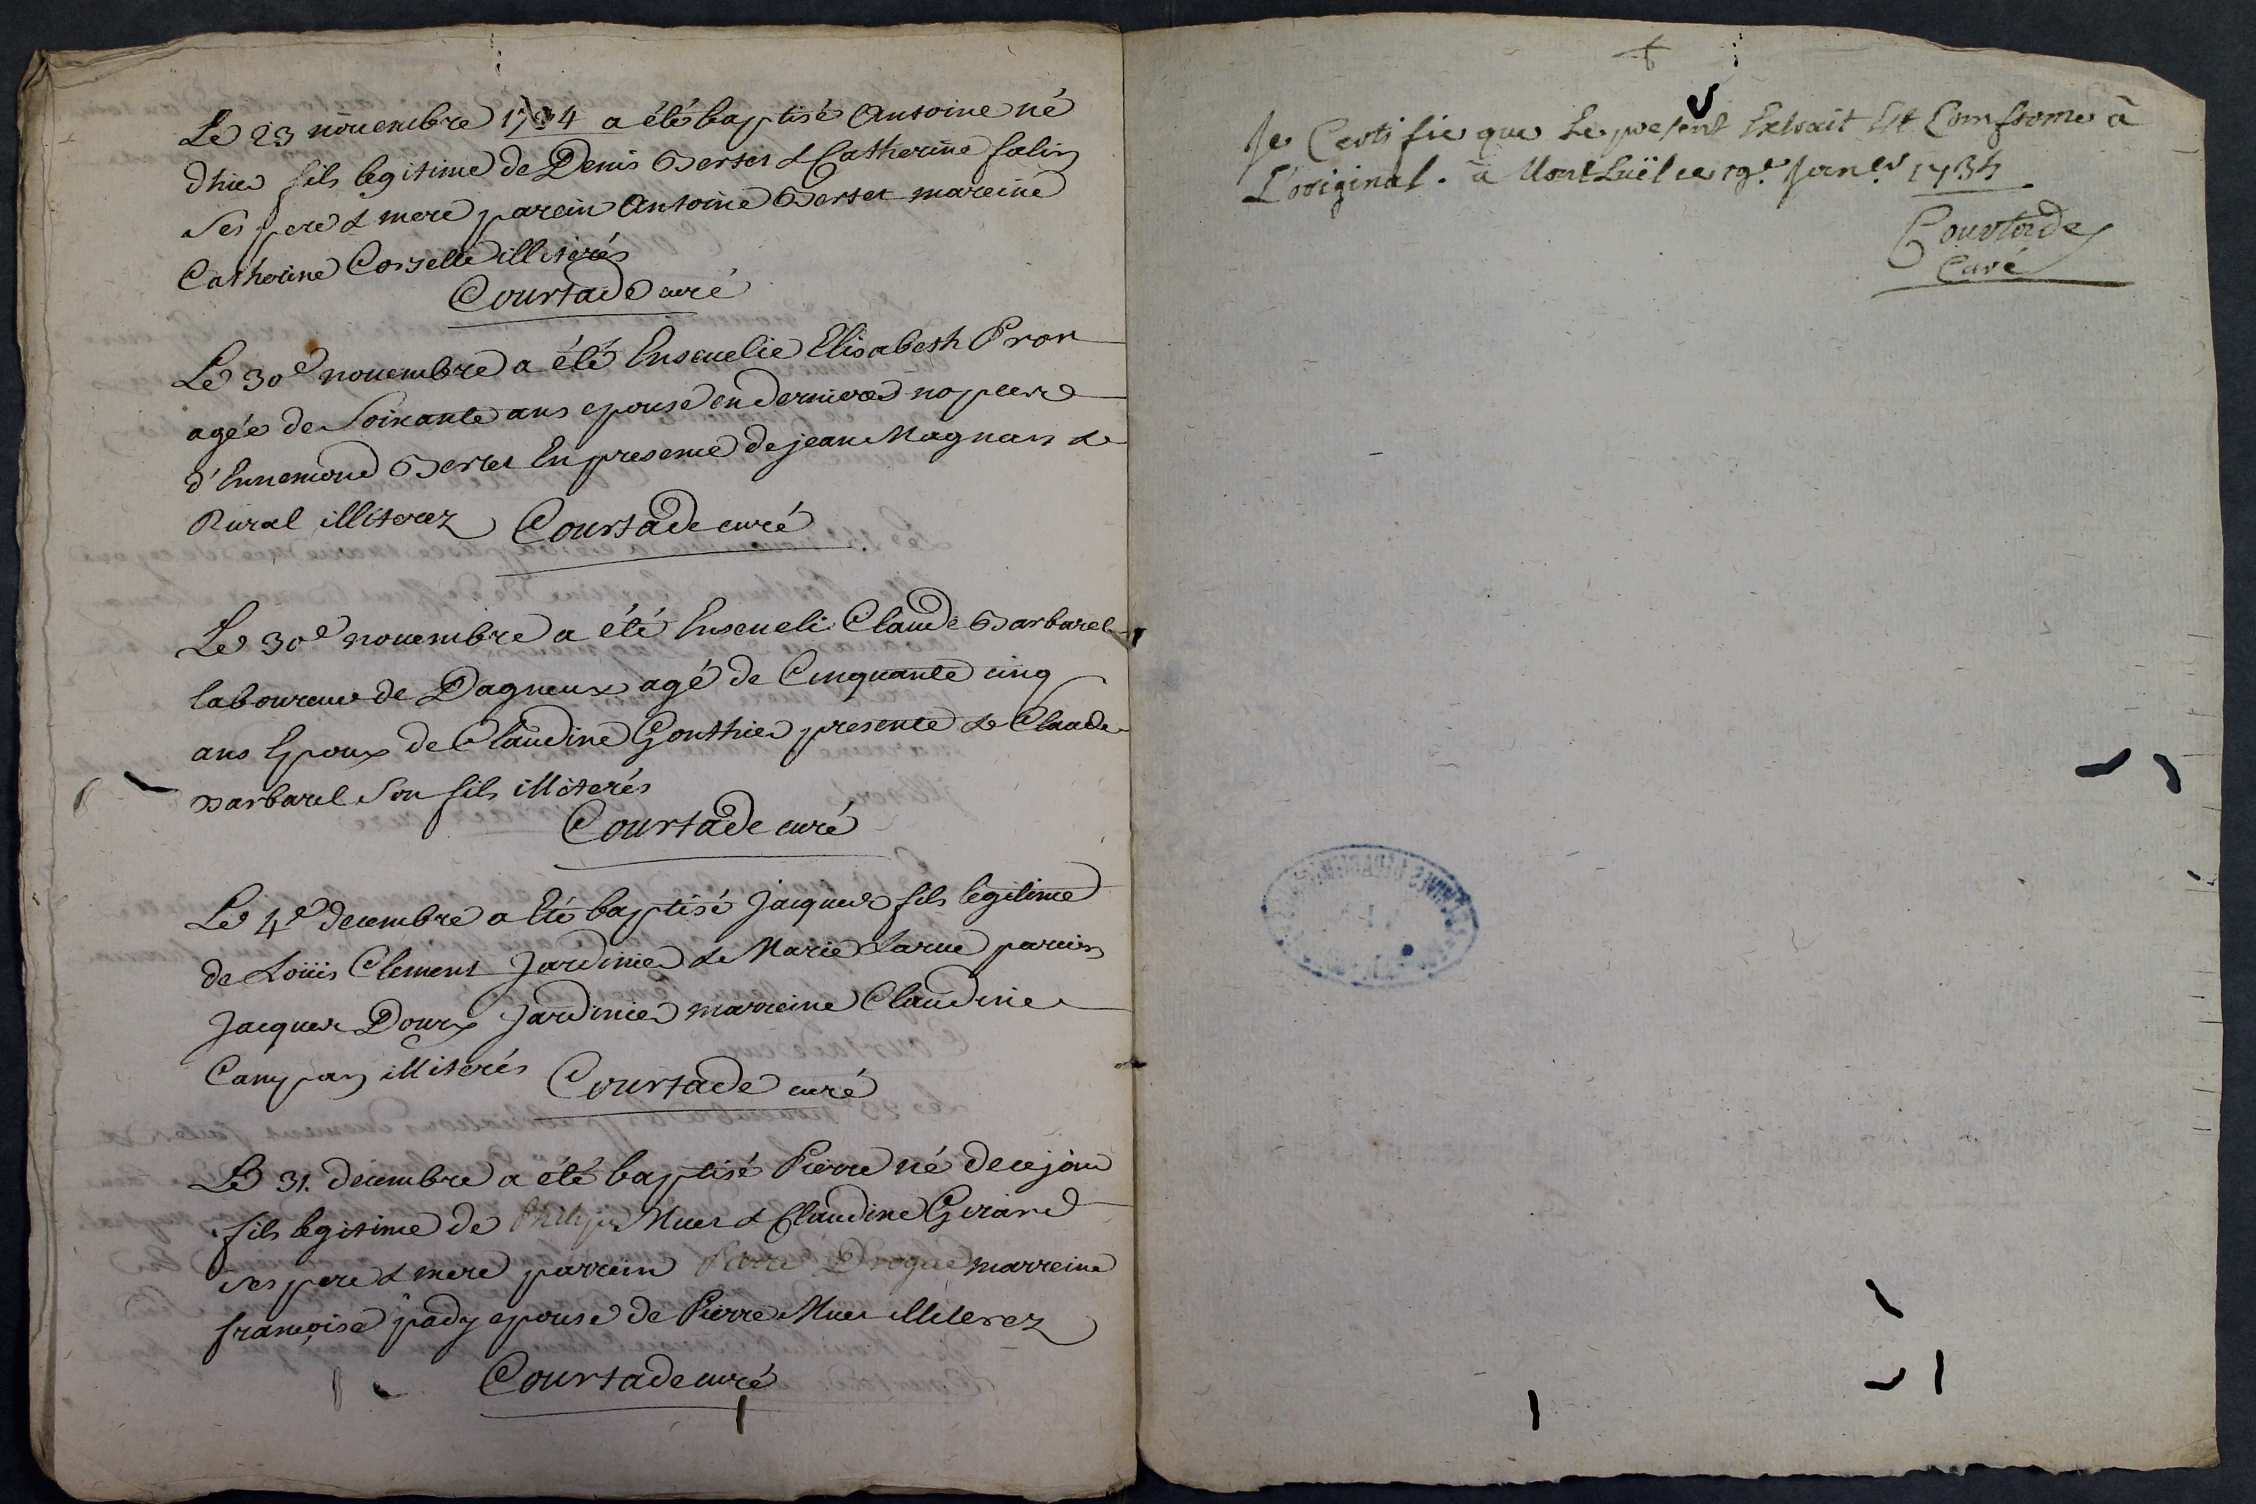 Le 23 nouembre 1734 a été baptisé Antoine né
d'hier fils legitime de Denis Berter & Catherine falin
Ses pere & mere parein Antoine Berter mareine
Catherine Corselle illiterés
Courtade curé
Le 30e nouembre a été Enseuelie Elisabeth Pror
agée de Soixante ans epouse en dernieres nopces
d'Ennemond Berter En presence de jean Magnan &
Rural illiterez Courtade curé
Le 30e nouembre a été Enseueli Claude Barbarel
laboureur de Dagneux agé de Cinquante cinq
ans Epoux de Claudine Gonthier presente & Claude
Barbarel Son fils illiterés
Courtade curé
Le 4e decembre a Eté baptisé Jacques fils legitime
de Loüis Clement Jardinier & Marie Larue parein
Jacques Doux Jardinier marreine Claudine
Campan illiterés Courtade curé
Le 31. decembre a été baptisé Pierre né de ce jour
fils legitime de Philipe Muet & Claudine Girard
ses pere & mere parrein Pierre Drogue marreine
françoise pady epouse de Pierre Muet illiterez
Courtade curé
Je Certifie que Le present Extrait Est Comforme à
L'original. à MontLuël ce 19e Janer 1735
Courtade
Curé